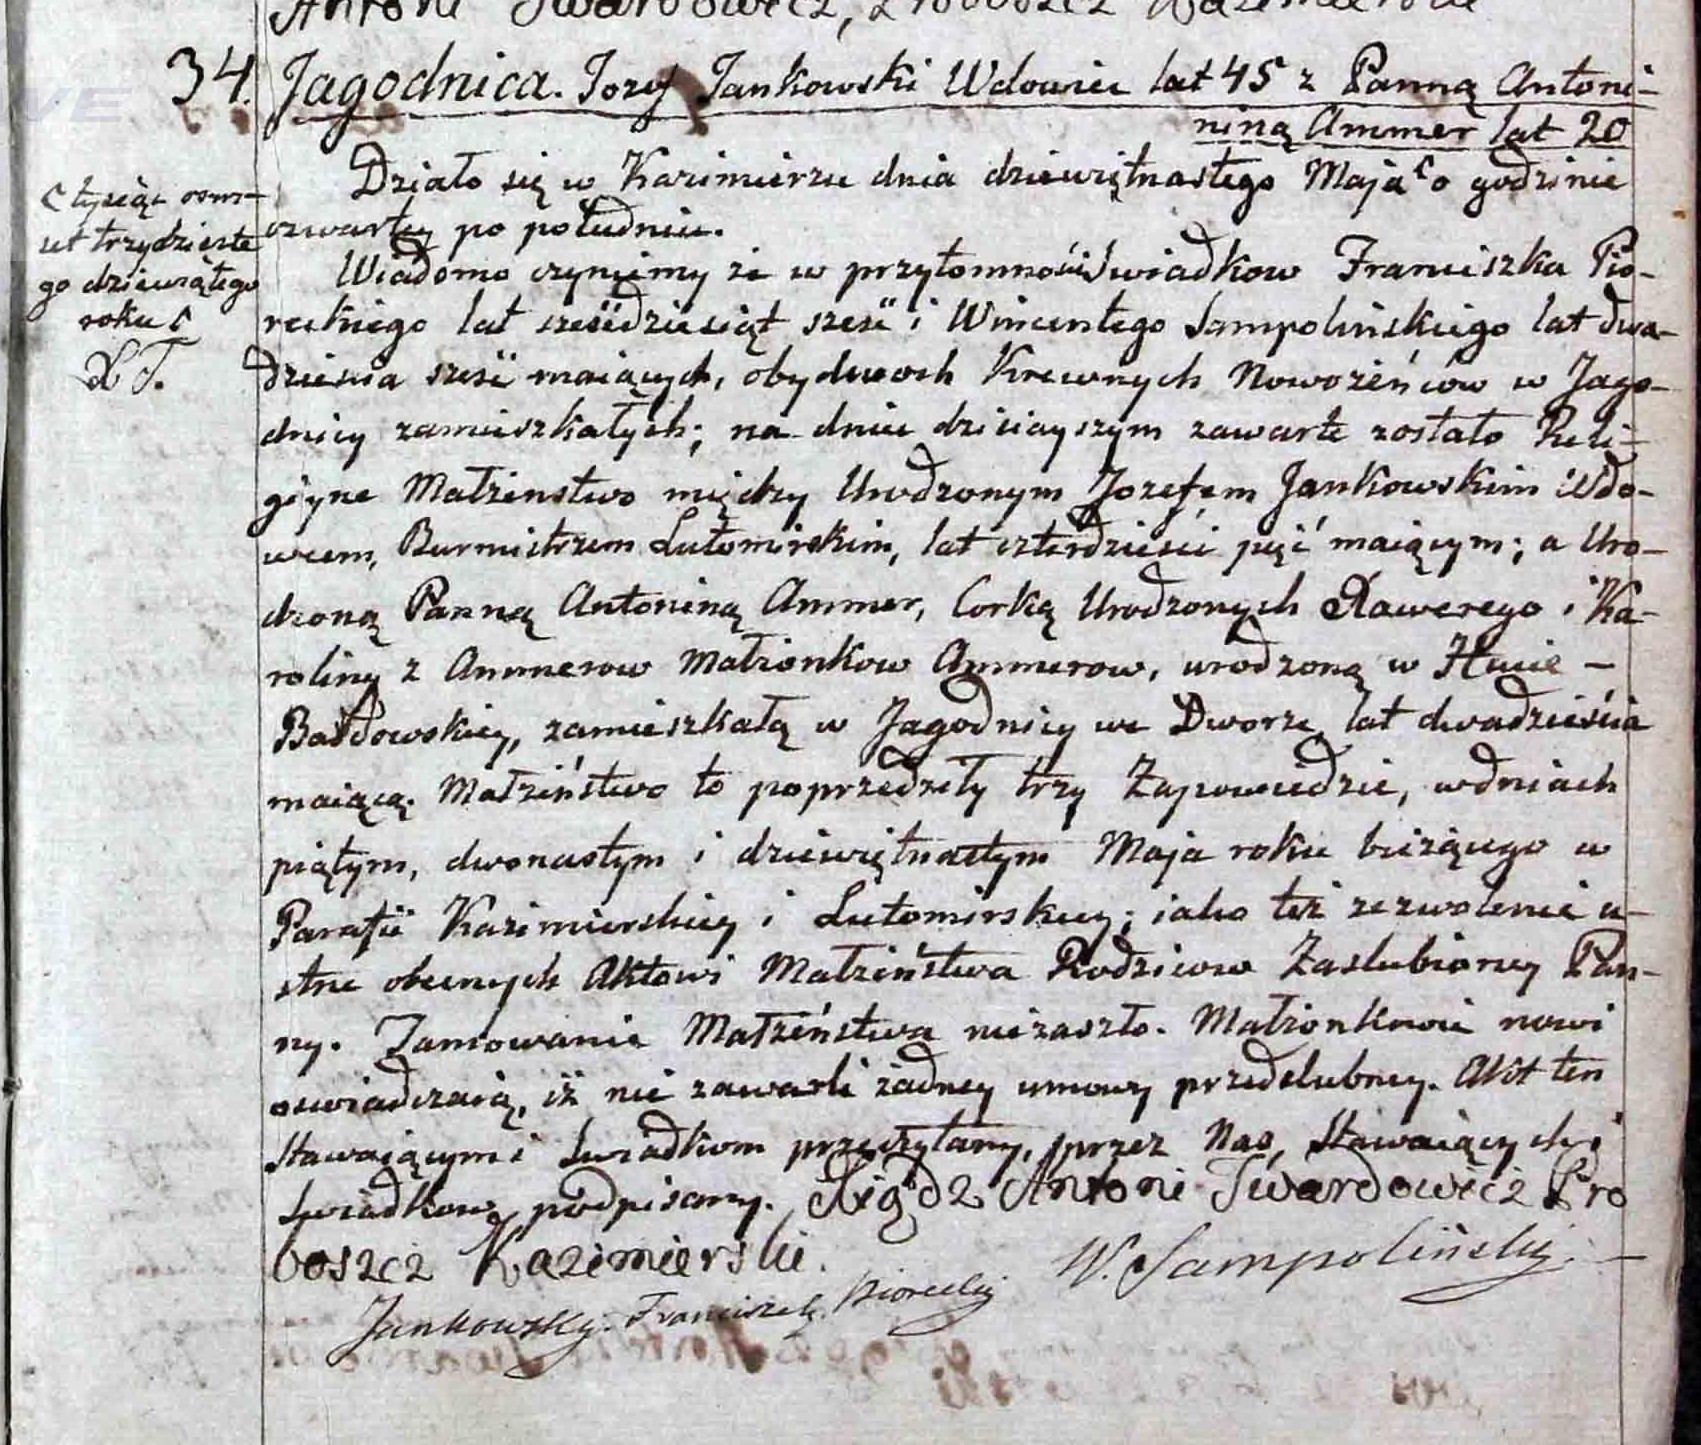 Antoni Twardowicz, Proboszcz Kazimierski
34. Jagodnica. Jozef Jankowski Wdowiec lat 45 z Panną Antoni-
niną Ammer lat 20
Działo się w Kazimierzu dnia dziewiętnastego Maja o godzinie
czwartey po południu.
tysiąc osm-
set trzydzieste
go dziewiątego
roku
X T.
Wiadomo czyniemy że w przytomności Swiadkow Franciszka Pio-
reckiego lat sześćdziesiąt sześć i Wincentego Sampolińskiego lat dwa-
dzieścia sześć maiących, obydwoch Krewnych Nowożeńców w Jago-
dnicy zamieszkałych; na dniu dzisieyszym zawarte zostało Reli-
giyne Małżenstwo między Urodzonym Jozefem Jankowskim Wdo-
wcem, Burmistrzem Lutomirskim, lat czterdzieści pięć maiącym; a Uro-
dzoną Panną Antoniną Ammer, Corką Urodzonych Xawerego i Ka-
roliny z Ammerow Małżonkow Ammerow, urodzoną w Hucie -
Bardowskiey, zamieszkałą w Jagodnicy we Dworze, lat dwadzieścia
maiącą. Małżeństwo to poprzedzeły trzy Zapowiedzie, w dniach
piątym, dwonastym i dziewiętnastym Maja roku bieżącego w
Parafii Kazimierskiey i Lutomirskiey; iako też zezwolenie u-
stne obecnych Aktowi Małżeństwa Rodzicow Zaslubioney Pan-
ny. Tamowanie Małżeństwa niezaszło. Małżonkowie nowi
oswiadczaią, iż nie zawarli żadney umowy przedslubney. Akt ten
Stawaiącym i Swiadkom przeczytany, przez Nas, Stawaiących i
Swiadkow podpisany. Xiądz Antoni Twardowicz Pro
boszcz Kazimierski.
W. Sampoliński
Jankowsky. Franciszek Piorecky